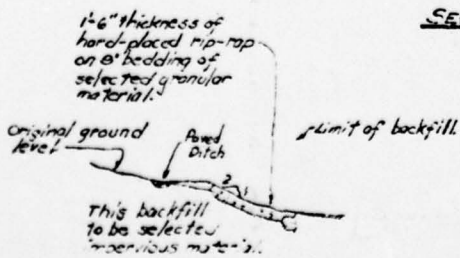 SE
1'-6" thickness of
hand-placed rip-rap
on 8" bedding of
selected granular
material.
Original ground
level
Paved
Ditch
Limit of backfill.
2
1
This backfill
to be selected
impervious material.